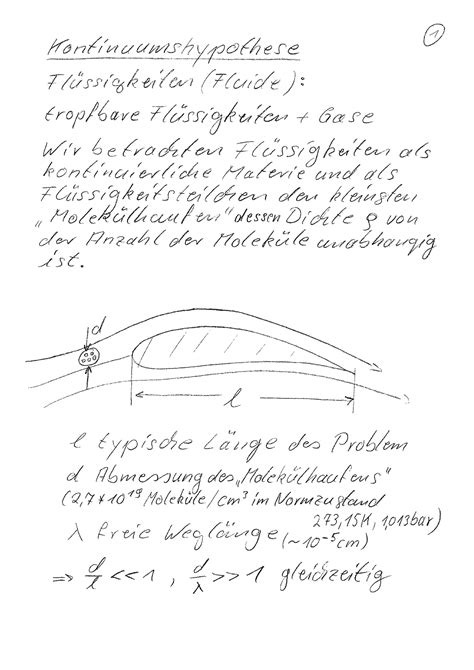 1
Kontinuumshypothese
Flüssigkeiten (Fluide):
tropfbare Flüssigkeiten + Gase
Wir betrachten Flüssigkeiten als
kontinuierliche Materie und als
Flüssigkeitsteilchen den kleinsten
„Molekülhaufen" dessen Dichte ρ von
der Anzahl der Moleküle unabhängig
ist.
d
l
l typische Länge des Problem
d Abmessung des „Molekülhaufens"
(2,7*10^19 Moleküle/cm³ im Normzustand
273,15K, 1,013bar)
λ freie Weglänge (~10^-5 cm)
=> d/l <<1 , d/λ >> 1 gleichzeitig